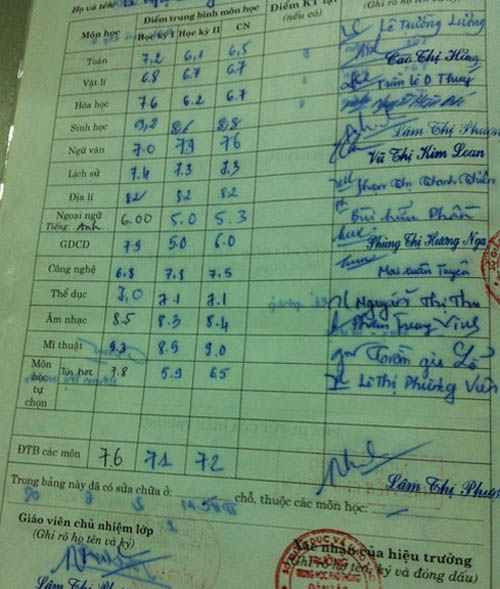 Họ và tên
Môn học Điểm trung bình môn học Điểm KT lại (nếu có)
Học kỳ I Học kỳ II CN
Lê Trường Lương
Toán 7,2 6,1 6,5 Cao Thị Hồng
Vật lí 6.8 6.7 6.7 Trần Lê D Thuy
Hóa học 76 6.2 6.7
Sinh học 9,2 8,6 8,8 Lâm Thị Phượ
Ngữ văn 7.0 79 76 Vũ Thị Kim Loan
Lịch sử 7.4 7.3 7.3
Địa lí 82 82 82
Ngoại ngữ 6.00 5.0 5.3 Bùi Phấn
Tiếng: Anh
GDCD 79 5.0 6.0 Phùng Thị Hương Nga
Công nghệ 6.8 7.8 7.5 Mai Xuân Tuyên
Thể dục 7,0 7.1 7.1 Nguyễn Thị Thu
Âm nhạc 8.5 8.3 8.4
Mĩ thuật 9.3 8.9 9.0
Môn học tự chọn Tin học 7.8 5.9 65 Lê Thị Phương Vân
ĐTB các môn 7.6 7.1 7.2
Lâm Thị Phượ
Trong bảng này đã có sửa chữa ở: chỗ, thuộc các môn học:
Giáo viên chủ nhiệm lớp Xác nhận của hiệu trưởng
(Ghi rõ họ tên và ký) (Ghi rõ họ tên, ký và đóng dấu)
Lâm Thị Phượ